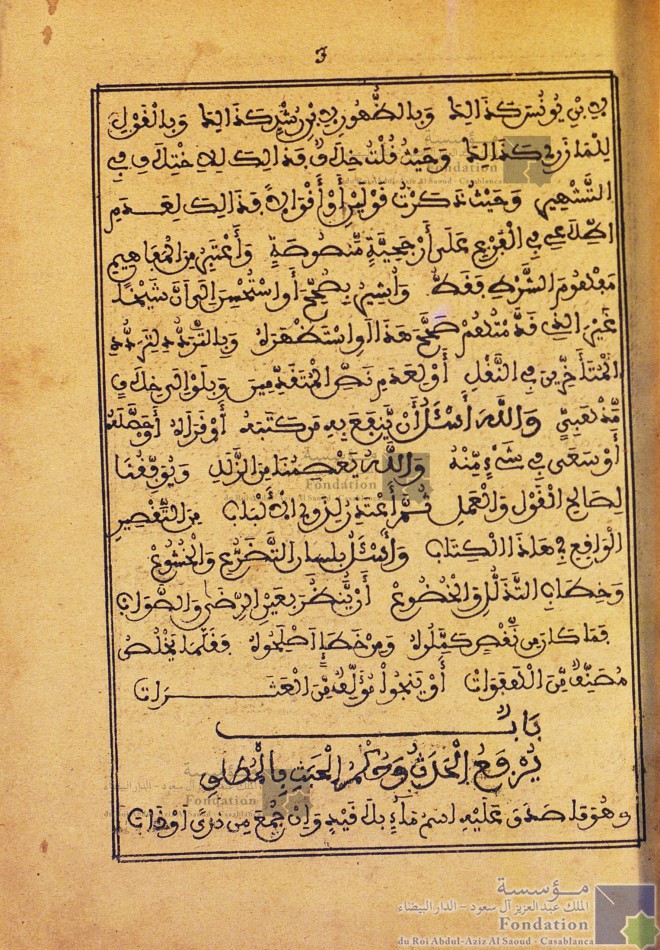 3
لِابْنِ يُونُسَ كَذَالِكَ وَبِالظُّهُورِ لِابْنِ رُشْدٍ كَذَالِكَ وَبِالْقَوْلِ
لِلْمَازَرِي كَذَالِكَ وَحَيْثُ قُلْتُ خِلَافٌ فَذَالِكَ لِلِاخْتِلَافِ فِي
التَّشْهِيرِ وَحَيْثُ ذَكَرْتُ قَوْلَيْنِ أَوْ أَقْوَالًا فَذَالِكَ لِعَدَمِ
اطِّلَاعِي فِي الْفَرْعِ عَلَى أَرْجَحِيَّةٍ مَّنْصُوصَةٍ وَأَعْتَبِرُ مِنَ الْمَفَاهِيمِ
مَفْهُومَ الشَّرْطِ فَقَطْ وَأُشِيرُ بِصُحِّحَ أَوِ اسْتُحْسِنَ إِلَى أَنَّ شَيْخًا
غَيْرَ الذِينَ قَدَّمْتُهُمْ صَحَّحَ هَذَا أَوِ اسْتَظْهَرَهُ وَبِالتَّرَدُّدِ لِتَرَدُّدِ
الْمُتَأَخِّرِينَ فِي النَّقْلِ أَوْ لِعَدَمِ نَصِّ الْمُتَقَدِّمِينَ وَبِلَوْ إِلَى خِلَافٍ
مَّذْهَبِيٍّ وَاللَّهَ أَسْئَلُ أَنْ يَّنْفَعَ بِهِ مَن كَتَبَهُ أَوْ قَرَأَهُ أَوْ حَصَّلَهُ
أَوْ سَعَى فِي شَيْءٍ مِّنْهُ وَاللَّهُ يَعْصِمُنَا مِنَ الزَّلَلِ وَيُوَفِّقُنَا
لِصَالِحِ الْقَوْلِ وَالْعَمَلِ ثُمَّ أَعْتَذِرُ لِذَوِي الْأَلْبَابِ مِنَ التَّقْصِيرِ
الْوَاقِعِ فِي هَاذَا الْكِتَابِ وَأَسْئَلُ بِلِسَانِ التَّضَرُّعِ وَالْخُشُوعِ
وَخِطَابِ التَّذَلُّلِ وَالْخُضُوعِ أَنْ يُّنْظَرَ بِعَيْنِ الرِّضَى وَالصَّوَابِ
فَمَا كَانَ مِن نَّقْصٍ كَمَّلُوهُ وَمِنْ خَطَإٍ أَصْلَحُوهُ فَقَلَّمَا يَخْلُصُ
مُصَنِّفٌ مِّنَ الْهَفَوَاتِ أَوْ يَنْجُوا مُؤَلِّفٌ مِّنَ الْعَثَرَاتِ
بَابٌ
يُرْفَعُ الْحَدَثُ وَحُكْمُ الْخَبَثِ بِالْمُطْلَقِ
وَهُوَ مَا صَدَقَ عَلَيْهِ اسْمُ مَاءٍ بِلَا قَيْدٍ وَإِنْ جُمِعَ مِن نَدًى أَوْ ذَابَ
مؤسسة
الملك عبد العزيز آل سعود - الدار البيضاء
Fondation
du Roi Abdul-Aziz Al Saoud - Casablanca